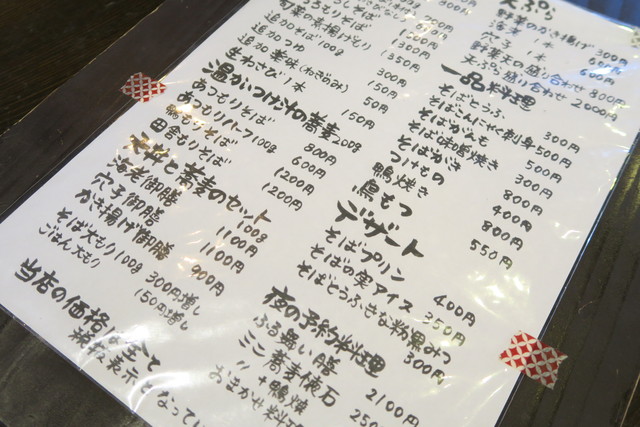 旬菜の蕎麦 1200円
追加 旬菜の素揚げもり 1300円
追加そば100g 350円
追加 つゆ 300円
追加 薬味(ねぎのみ) 50円
生わさび1本 150円
温かいつけ汁の蕎麦 200g
あつもりそば 800円
あつもりハーフ100g 600円
鴨汁そば 1200円
田舎汁そば 1200円
天丼と蕎麦のセット 100g
海老御膳 1100円
穴子御膳 1100円
かき揚げ御膳 900円
そば大もり100g 300円増し
ごはん大もり 150円増し
当店の価格は全て
表示となってい
天ぷら
野菜のかき揚げ 300円
海老 1本
穴子 1本 600円
野菜天の盛り合わせ 800円
天ぷら盛り合わせ 2000円
一品料理
そばとうふ 300円
そばこんにゃく刺身 500円
そばかなも 500円
そば味噌焼き 300円
そばがき 800円
つけもの 400円
鴨焼き 800円
鳥もつ 550円
デザート
そばプリン 400円
そばの実アイス 350円
そばとうふきな粉黒みつ 300円
夜の予約料理
ふる舞い膳 2100円
ミニ蕎麦懐石 250
〃 +鴨焼
おまかせ料理